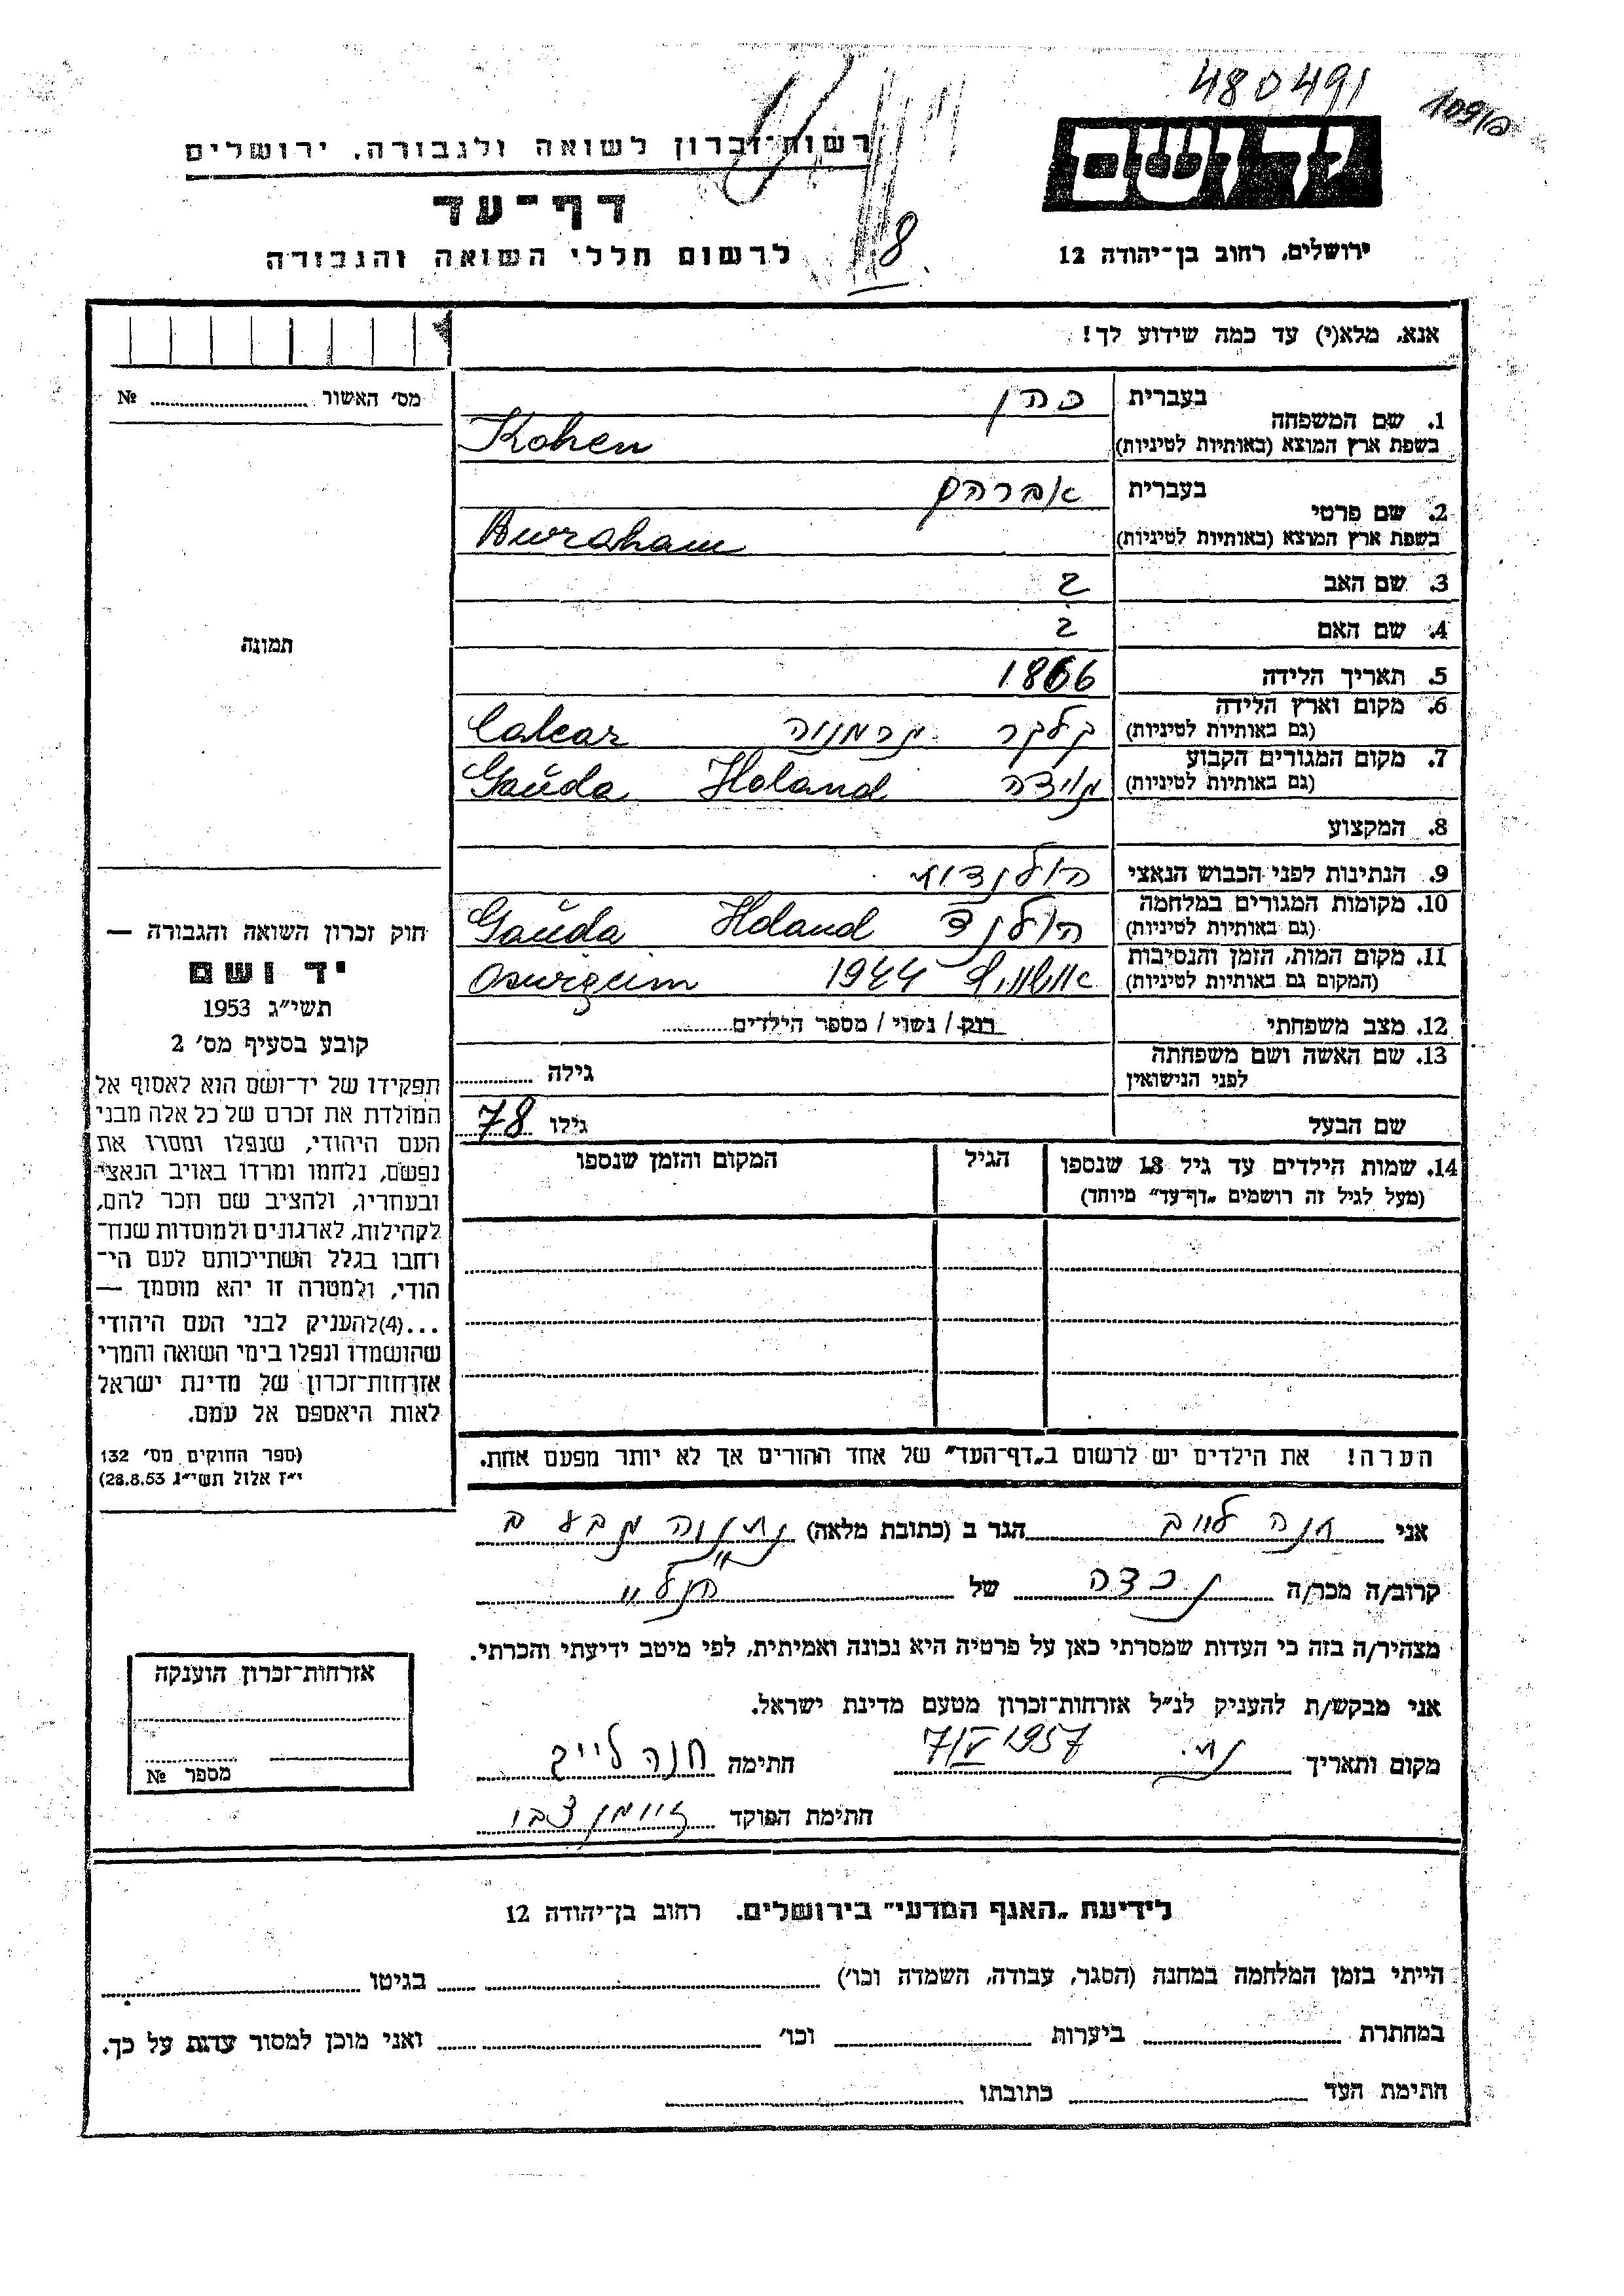 480491
יד ושם
רשות־זכרון לשואה ולגבורה, ירושלים
דף־עד
לרשום חללי השואה והגבורה
8
ירושלים, רחוב בן־יהודה 12
אנא, מלא(י) עד כמה שידוע לך!
מס' האשור № 
תמונה
1. שם המשפחה בעברית כהן
בשפת ארץ המוצא (באותיות לטיניות) Kohen
2. שם פרטי בעברית אברהם
בשפת ארץ המוצא (באותיות לטיניות) Awraham
3. שם האב ?
4. שם האם ?
5. תאריך הלידה 1866
6. מקום וארץ הלידה
(גם באותיות לטיניות) קלקר גרמניה Calcar
7. מקום המגורים הקבוע
(גם באותיות לטיניות) Holand Gaŭda
8. המקצוע
9. הנתינות לפני הכבוש הנאצי הולנדית
10. מקומות המגורים במלחמה
(גם באותיות לטיניות) הולנד Holand Gaŭda
11. מקום המות, הזמן והנסיבות
(המקום גם באותיות לטיניות) 1944 Oswrgeim
12. מצב משפחתי רוק / נשוי / מספר הילדים
13. שם האשה ושם משפחתה
לפני הנישואין גילה
שם הבעל גילו 78
14. שמות הילדים עד גיל 18 שנספו הגיל המקום והזמן שנספו
(מעל לגיל זה רושמים „דף־עד" מיוחד)
הערה! את הילדים יש לרשום ב„דף־העד" של אחד ההורים אך לא יותר מפעם אחת.
חוק זכרון השואה והגבורה —
יד ושם
תשי"ג 1953
קובע בסעיף מס' 2
תפקידו של יד־ושם הוא לאסוף אל
המולדת את זכרם של כל אלה מבני
העם היהודי, שנפלו ומסרו את
נפשם, נלחמו ומרדו באויב הנאצי
ובעוזריו, ולהציב שם וזכר להם,
לקהילות, לארגונים ולמוסדות שנח־
רחבו בגלל השתייכותם לעם הי־
הודי, ולמטרה זו יהא מוסמך —
...(4)להעניק לבני העם היהודי
שהושמדו ונפלו בימי השואה והמרי
אזרחות־זכרון של מדינת ישראל
לאות היאספם אל עמם.
(ספר החוקים מס' 132
י"ז אלול תשי"ג 28.8.53)
אני חנה לייב הגר ב (כתובת מלאה) נתניה
קרוב/ה מכר/ה נכדה של הנ"ל
מצהיר/ה בזה כי העדות שמסרתי כאן על פרטיה היא נכונה ואמיתית, לפי מיטב ידיעתי והכרתי.
אני מבקש/ת להעניק לנ"ל אזרחות־זכרון מטעם מדינת ישראל.
מקום ותאריך נת. 7/V 1957 חתימה חנה לייב
חתימת הפוקד
אזרחות־זכרון הוענקה
מספר №
לידיעת „האגף המדעי" בירושלים. רחוב בן־יהודה 12
הייתי בזמן המלחמה במחנה (הסגר, עבודה, השמדה וכו') בגיטו
במחתרת ביערות וכו' ואני מוכן למסור עדות על כך.
חתימת העד כתובתו